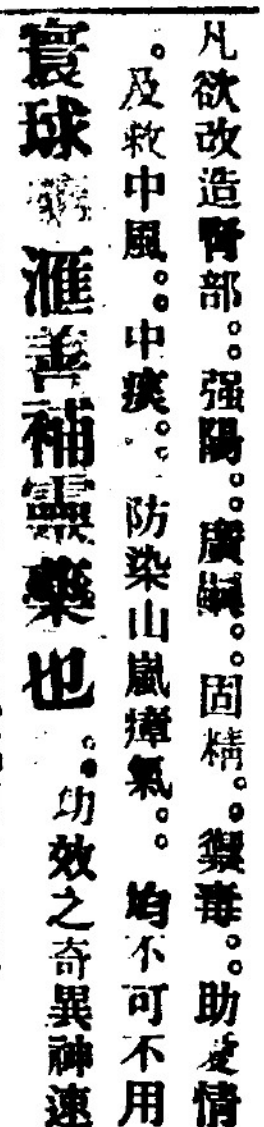 凡欲改造腎部。。强陽。。廣嗣。。固精。。禦毒。。助愛情
。及救中風。。中痰。。防染山嵐瘴氣。。均不可不用
寰球滙善補靈藥也。。功效之奇異神速